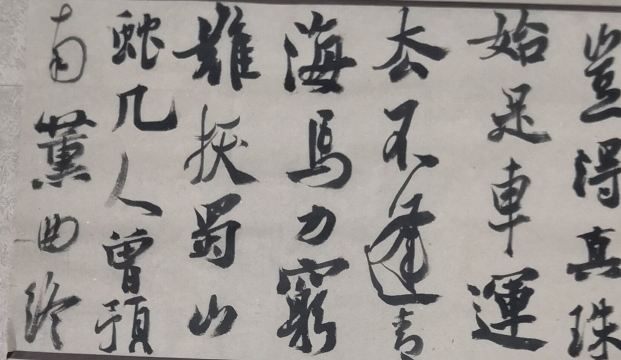 豈得真珠
始是車運
去不逢青
海馬力窮
難拔蜀山
蛇几人曾預
南薰曲終